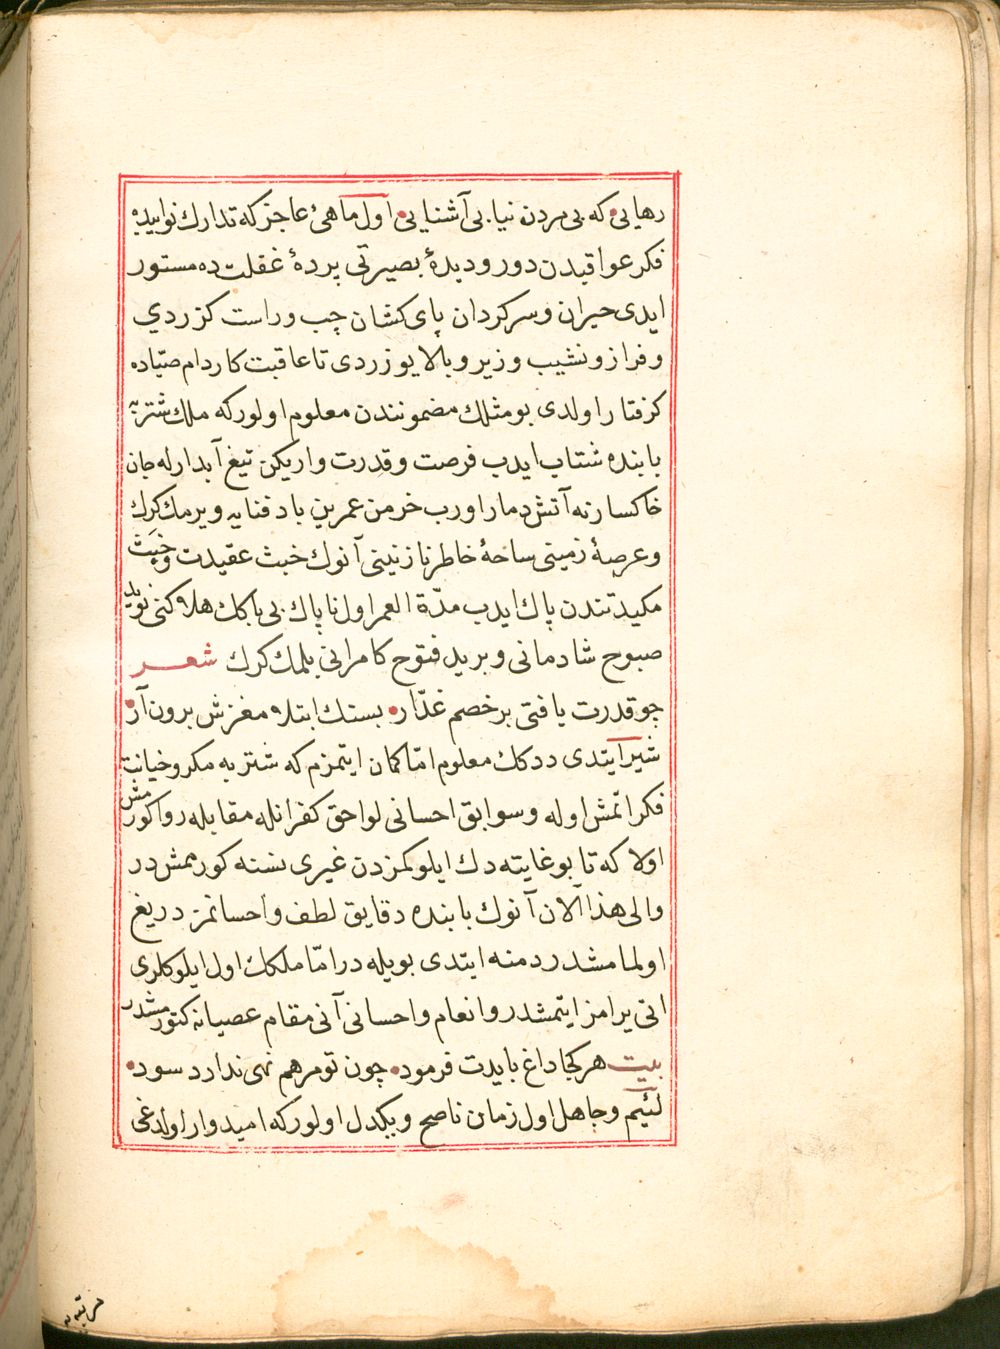 رهایی که بی مردن نیابی آشنایی اول ماهئ عاجز که تدارك نوایبده
فکر عواقبدن دور و دیدۀ بصیرتی پردۀ غفلت ده مستور
ایدی حیران و سرکردان پای کشان چپ و راست کزردی
و فراز و نشیب و زیر و بالا یوزردی تا عاقبت کار دام صیّاده
کرفتار اولدی بو مثلك مضموننندن معلوم اولور که ملك شتربه
بابنده شتاب ایدب فرصت و قدرت واریکن تیغ آبدارله جان
خاکسارنه آتش دمار اورب خرمن عمرین باد فنایه ویرمك کرك
و عرصۀ زمینی ساحۀ خاطر نازنینی آنوك خبث عقیدت و خبث
مکیدتندن پاك ایدب مدّة العمر اول ناپاك بی باكك هلاکنی نوید
صبوح شادمانی و برید فتوح کامرانی بلمك کرك شعر
چو قدرت یافتی بر خصم غدّار بستك ابتله مغزش برون آر
شیر ایتدی ددكك معلوم امّا کمان ایتمزم که شتربه مکر و خیانت
فکر اتمش اوله و سوابق احسانی لواحق کفرانله مقابله روا کورمش
اولا که تا بو غایته دك ایلوکمزدن غیری نسنه کورممش در
والی هذا الآن آنوك بابنده دقایق لطف و احسانمز دریغ
اولمامشدر دمنه ایتدی بویله در امّا ملكك اول ایلوکلری
انی یرامز ایتمشدر و انعام و احسانی آنی مقام عصیانه کتورمشدر
بیت هر کجا داغ بایدت فرمود چون تو مرهم نهی ندارد سود
لئیم و جاهل اول زمان ناصح و یکدل اولور که امیدوار اولدغی
مرتبه یه